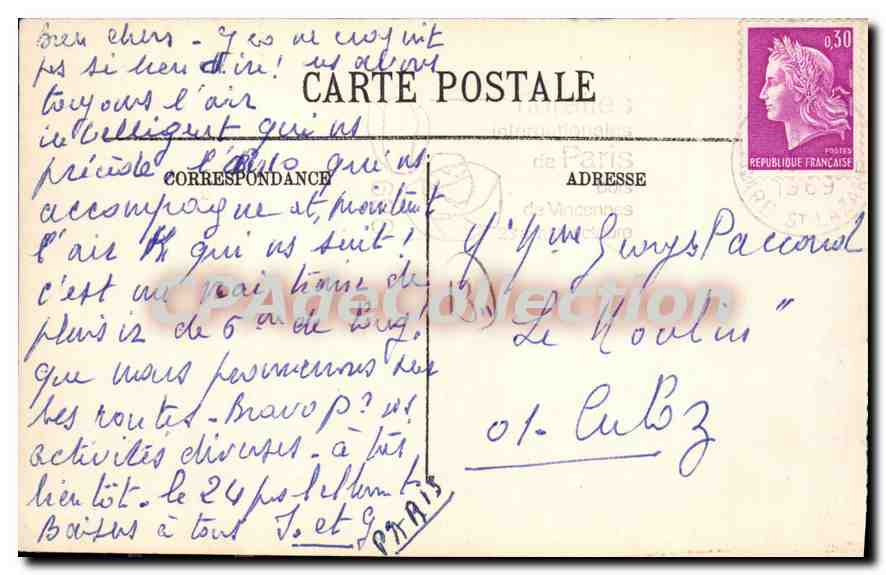 Bien chers - Y co ne croyait
pas si bien dire! ns avons
toujours l'air
intelligent qui ns
précède l' qui ns
accompagne et, maintent
l'air qui ns suit!
c'est un vrai train de
plaisir de 5 de long!
que nous promenons sur
les routes - Bravo p? vos
activités diverses - à très
bientôt - le 24
Baisers à tous J. et G
PARIS
CARTE POSTALE
CORRESPONDANCE
ADRESSE
florales
internationales
de Paris
bois
de Vincennes
1969
0,30
POSTES
REPUBLIQUE FRANÇAISE
1969
ST LAZARE
M. Mme Georges Paccoud
"Le Moulin"
01- Culoz
CPAdeCollection.com